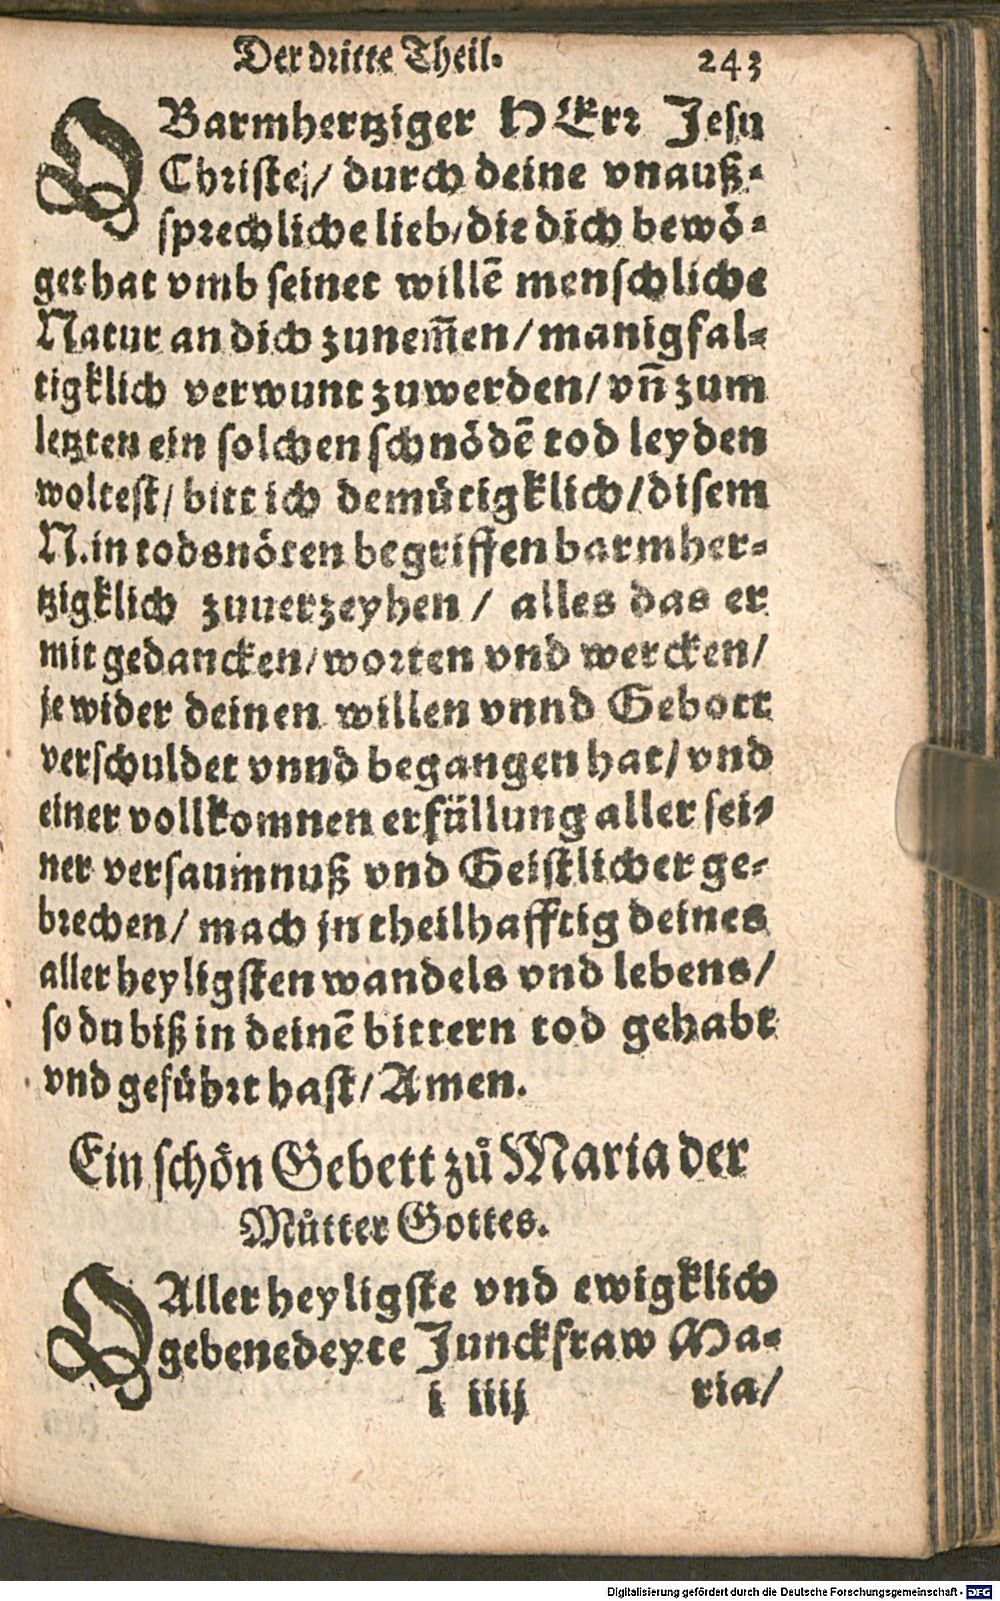 Der dritte Theil. 243
O Barmhertziger HErr Jesu
Christe/ durch deine vnauß-
sprechliche lieb/ die dich bewö-
get hat vmb seinet willē menschliche
Natur an dich zunem̄en/ manigfal-
tigklich verwunt zuwerden/ vñ zum
letzten ein solchen schnödē tod leyden
woltest/ bitt ich demütigklich/ disem
N. in todsnöten begriffen barmher-
tzigklich zuuerzeyhen/ alles das er
mit gedancken/ worten vnd wercken/
je wider deinen willen vnnd Gebott
verschuldet vnnd begangen hat/ vnd
einer vollkomnen erfüllung aller sei-
ner versaumnuß vnd Geistlicher ge-
brechen/ mach jn theilhafftig deines
aller heyligsten wandels vnd lebens/
so du biß in deinē bittern tod gehabt
vnd geführt hast/ Amen.
Ein schön Gebett zů Maria der
Můtter Gottes.
O Aller heyligste vnd ewigklich
gebenedeyte Junckfraw Ma-
i iiij ria/
Digitalisierung gefördert durch die Deutsche Forschungsgemeinschaft - DFG